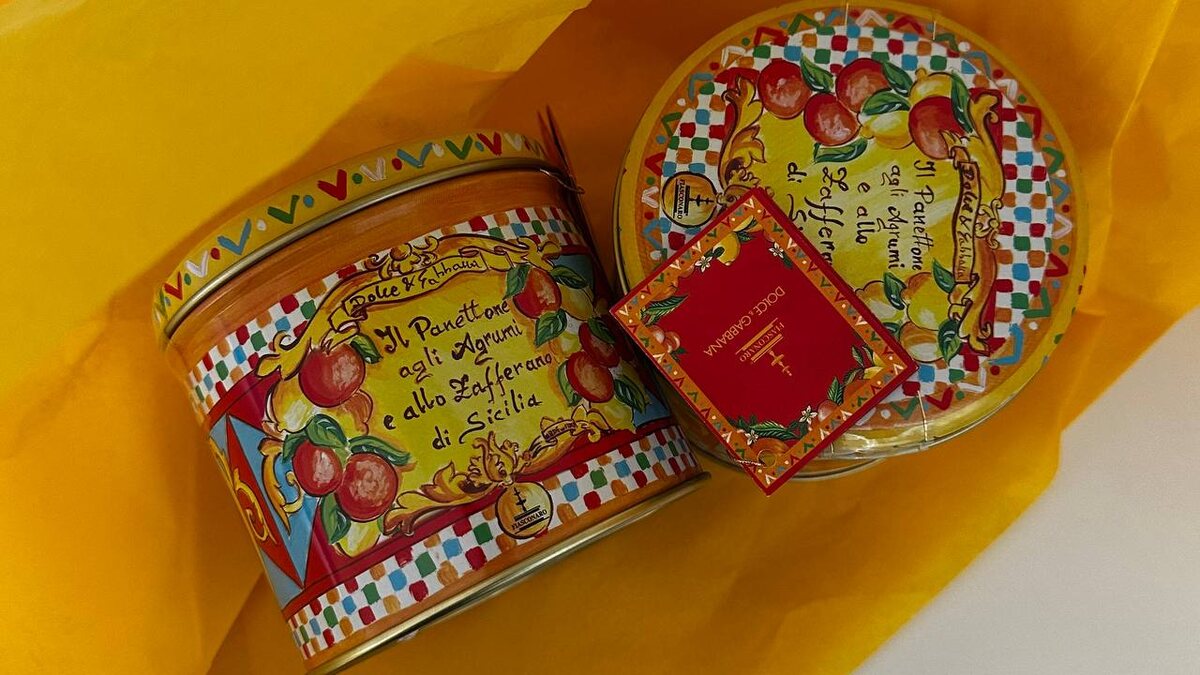 Dolce & Gabbana
Il Panettone
agli Agrumi
e allo Zafferano
di Sicilia
FIASCONARO
Dolce & Gabbana
Il Panettone
agli Agrumi
e allo
Zafferan
di S
FIASCONARO
DOLCE & GABBANA
FIASCONARO